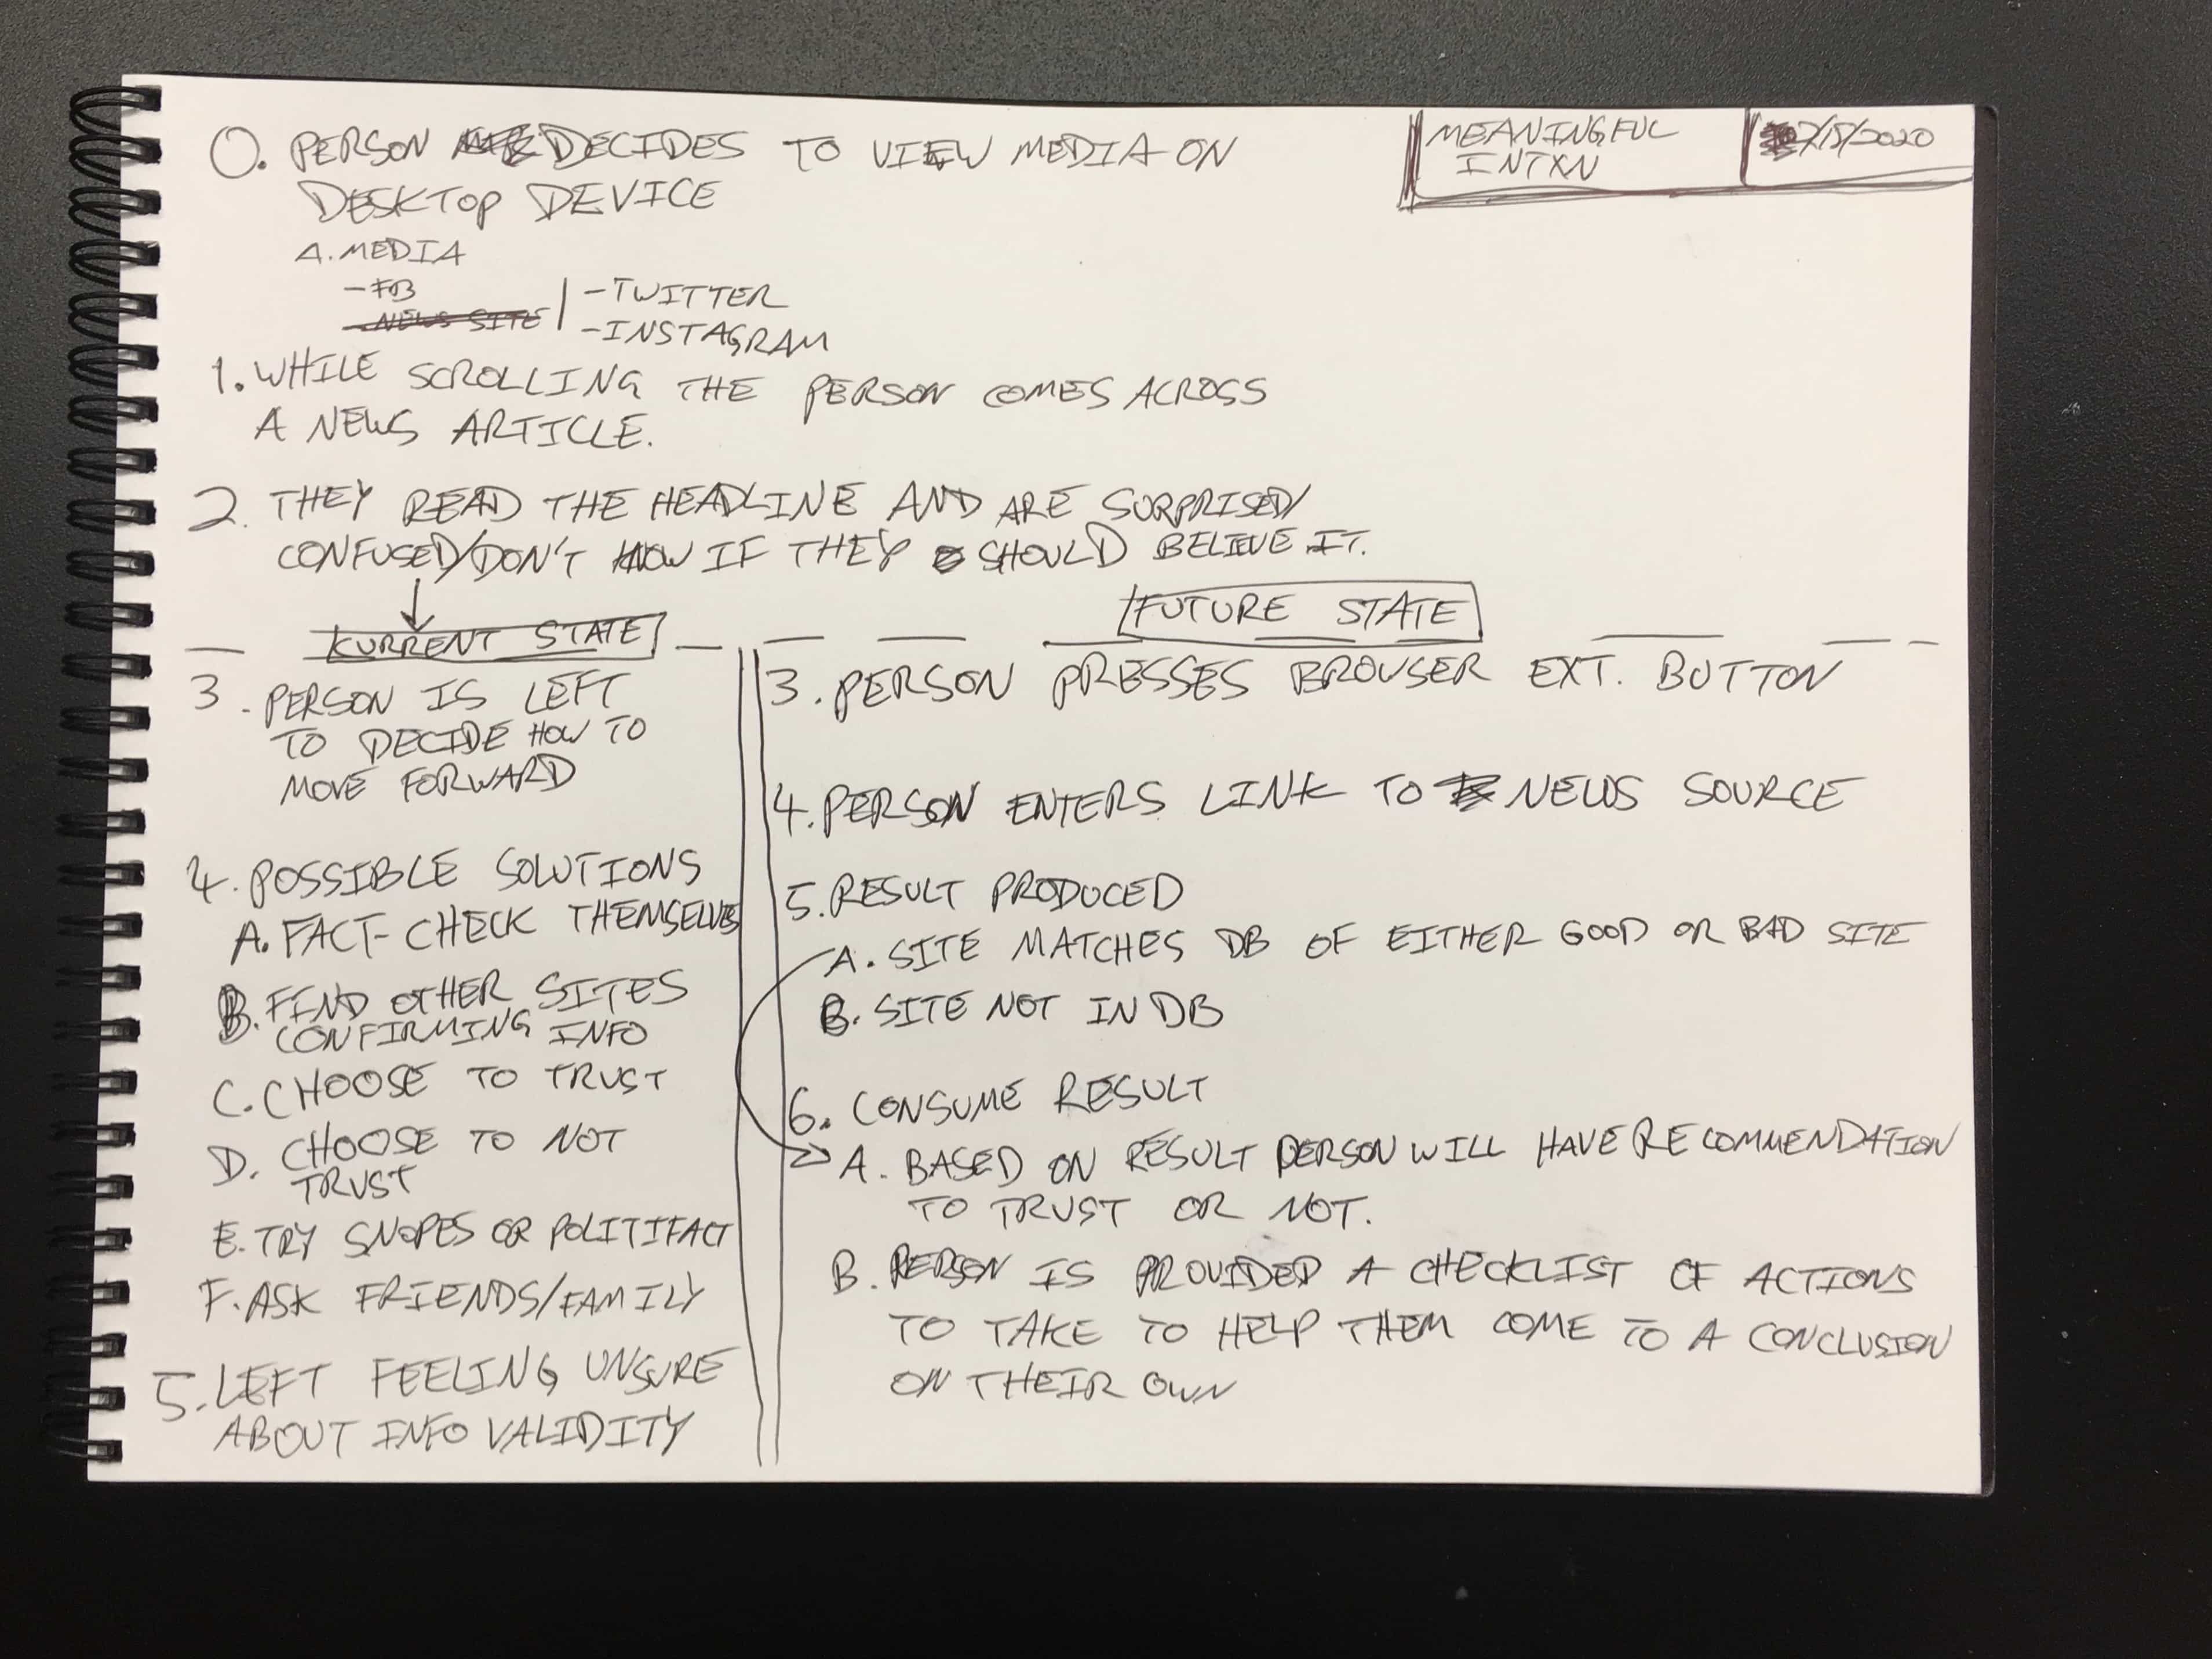 0. PERSON DECIDES TO VIEW MEDIA ON
DESKTOP DEVICE
A. MEDIA
- FB
- NEWS SITE
- TWITTER
- INSTAGRAM
MEANINGFUL
INTXN
/15/2020
1. WHILE SCROLLING THE PERSON COMES ACROSS
A NEWS ARTICLE.
2. THEY READ THE HEADLINE AND ARE SURPRISED/
CONFUSED/DON'T KNOW IF THEY SHOULD BELIEVE IT.
CURRENT STATE
3. PERSON IS LEFT
TO DECIDE HOW TO
MOVE FORWARD
4. POSSIBLE SOLUTIONS
A. FACT-CHECK THEMSELVES
B. FIND OTHER SITES
CONFIRMING INFO
C. CHOOSE TO TRUST
D. CHOOSE TO NOT
TRUST
E. TRY SNOPES OR POLITIFACT
F. ASK FRIENDS/FAMILY
5. LEFT FEELING UNSURE
ABOUT INFO VALIDITY
FUTURE STATE
3. PERSON PRESSES BROWSER EXT. BUTTON
4. PERSON ENTERS LINK TO NEWS SOURCE
5. RESULT PRODUCED
A. SITE MATCHES DB OF EITHER GOOD OR BAD SITE
B. SITE NOT IN DB
6. CONSUME RESULT
A. BASED ON RESULT PERSON WILL HAVE RECOMMENDATION
TO TRUST OR NOT.
B. PERSON IS PROVIDED A CHECKLIST OF ACTIONS
TO TAKE TO HELP THEM COME TO A CONCLUSION
ON THEIR OWN